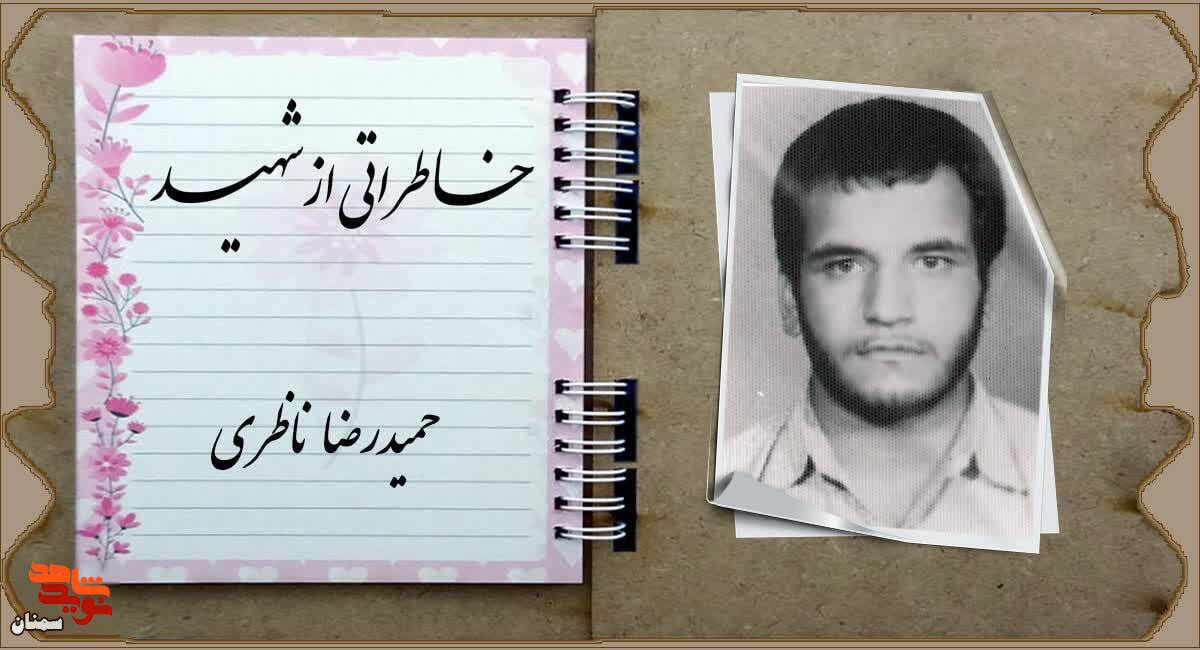 خاطراتی از شهید
حمیدرضا ناظری
نوید شاهد
سمنان